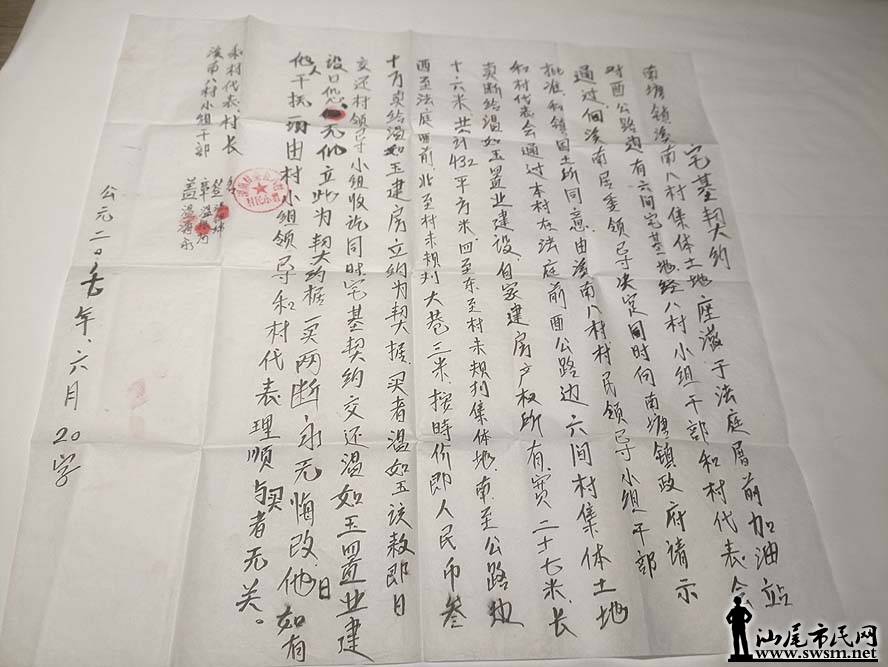 宅基契大约
南塘镇溪南八村集体土地座落于法庭厝前加油站
对西公路边有六间宅基地经八村小组干部和村代表会
通过,但溪南居委领导决定同时向南塘镇政府请示
批准,和镇国土所同意,由溪南八村村民领导小组干部
和村代表会通过本村在法庭前西公路边六间村集体土地
卖断给温如玉置业建设,自家建房产权所有,宽二十七米,长
十六米,共计432平方米,四至东至村未规划集体地,南至公路边
西至法庭西前,北至村未规划大巷三米,按時价即人民币叁
十万卖给温如玉建房立约为契据,买者温如玉该款即日
交还村领导小组收讫同时宅基契约交还温如玉置业建
设口恐无他立此为契大约据一买两断,永无悔改,他日如有
他人干扰一切由村小组领导和村代表理顺与买者无关。
溪南八村小组干部
和村代表村长
签
章
盖
村民小组
公元二00 年、六月20字
汕尾市民网
www.swsm.net